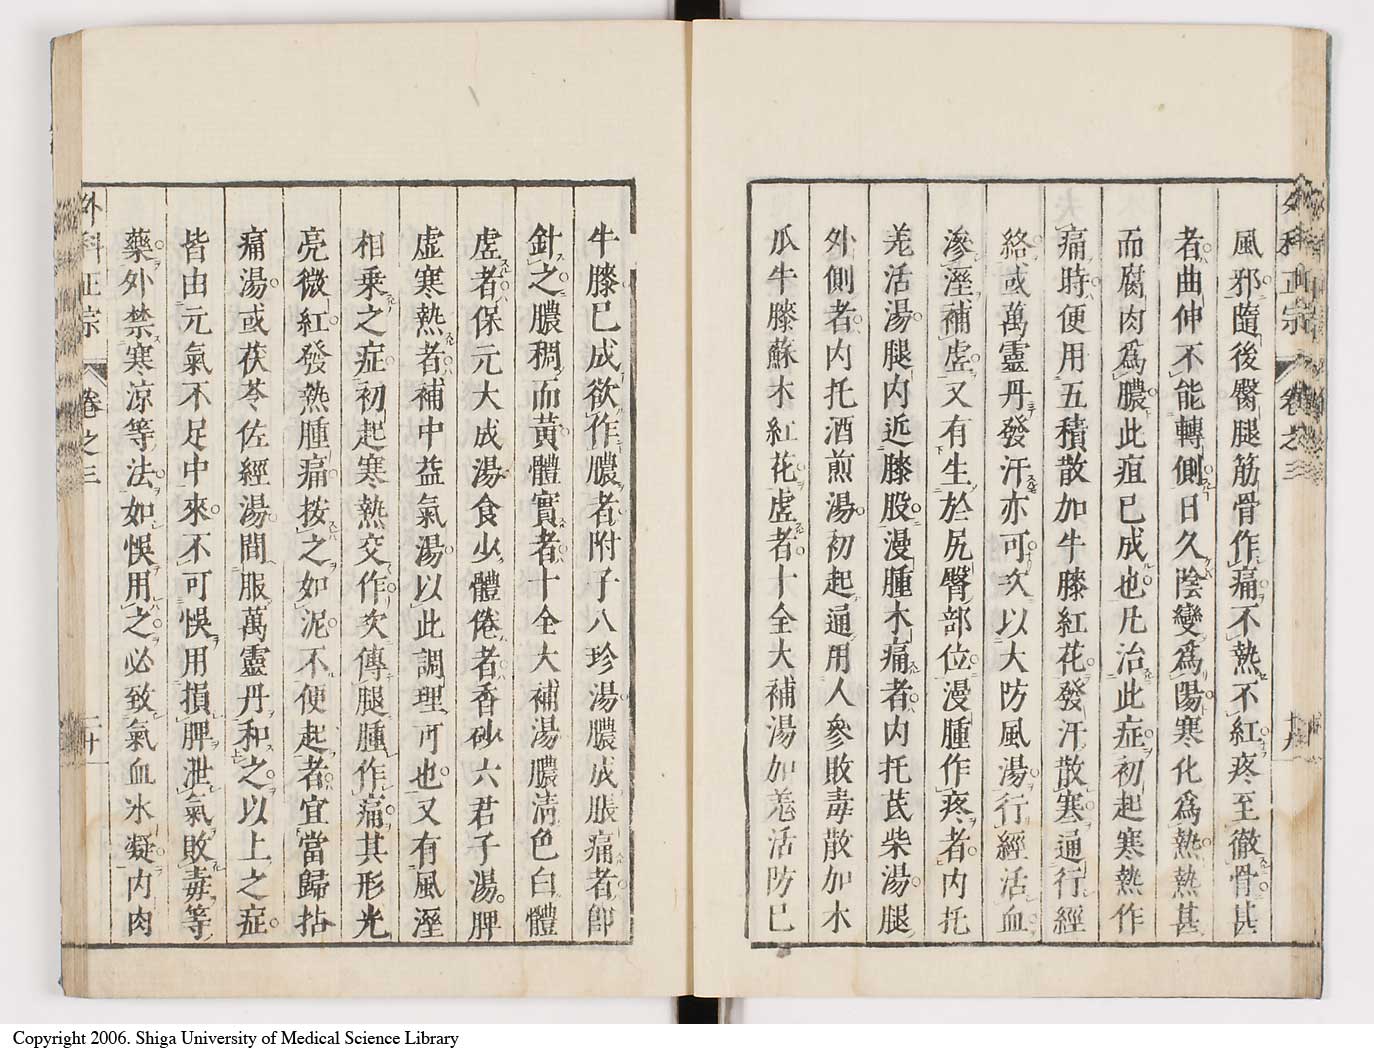 風邪隨後臀腿筋骨作痛不熱不紅疼至徹骨甚
者曲伸不能轉側日久陰變爲陽寒化爲熱熱甚
而腐肉爲膿此疽已成也凡治此症初起寒熱作
痛時便用五積散加牛膝紅花發汗散寒通行經
絡或萬靈丹發汗亦可次以大防風湯行經活血
滲溼補虛又有生於尻臀部位漫腫作疼者内托
羌活湯腿内近膝股漫腫木痛者内托芪柴湯腿
外側者内托酒煎湯初起通用人參敗毒散加木
瓜牛膝蘇木紅花虛者十全大補湯加羌活防已
外科正宗 卷之三 十九
牛膝已成欲作膿者附子八珍湯膿成脹痛者卽
針之膿稠而黃體實者十全大補湯膿淸色白體
虛者保元大成湯食少體倦者香砂六君子湯脾
虛寒熱者補中益氣湯以此調理可也又有風溼
相乘之症初起寒熱交作次傳腿腫作痛其形光
亮微紅發熱腫痛按之如泥不便起者宜當歸拈
痛湯或茯苓佐經湯間服萬靈丹和之以上之症
皆由元氣不足中來不可悞用損脾泄氣敗毒等
藥外禁寒涼等法如悞用之必致氣血冰凝内肉
外科正宗 卷之三 二十
Copyright 2006. Shiga University of Medical Science Library